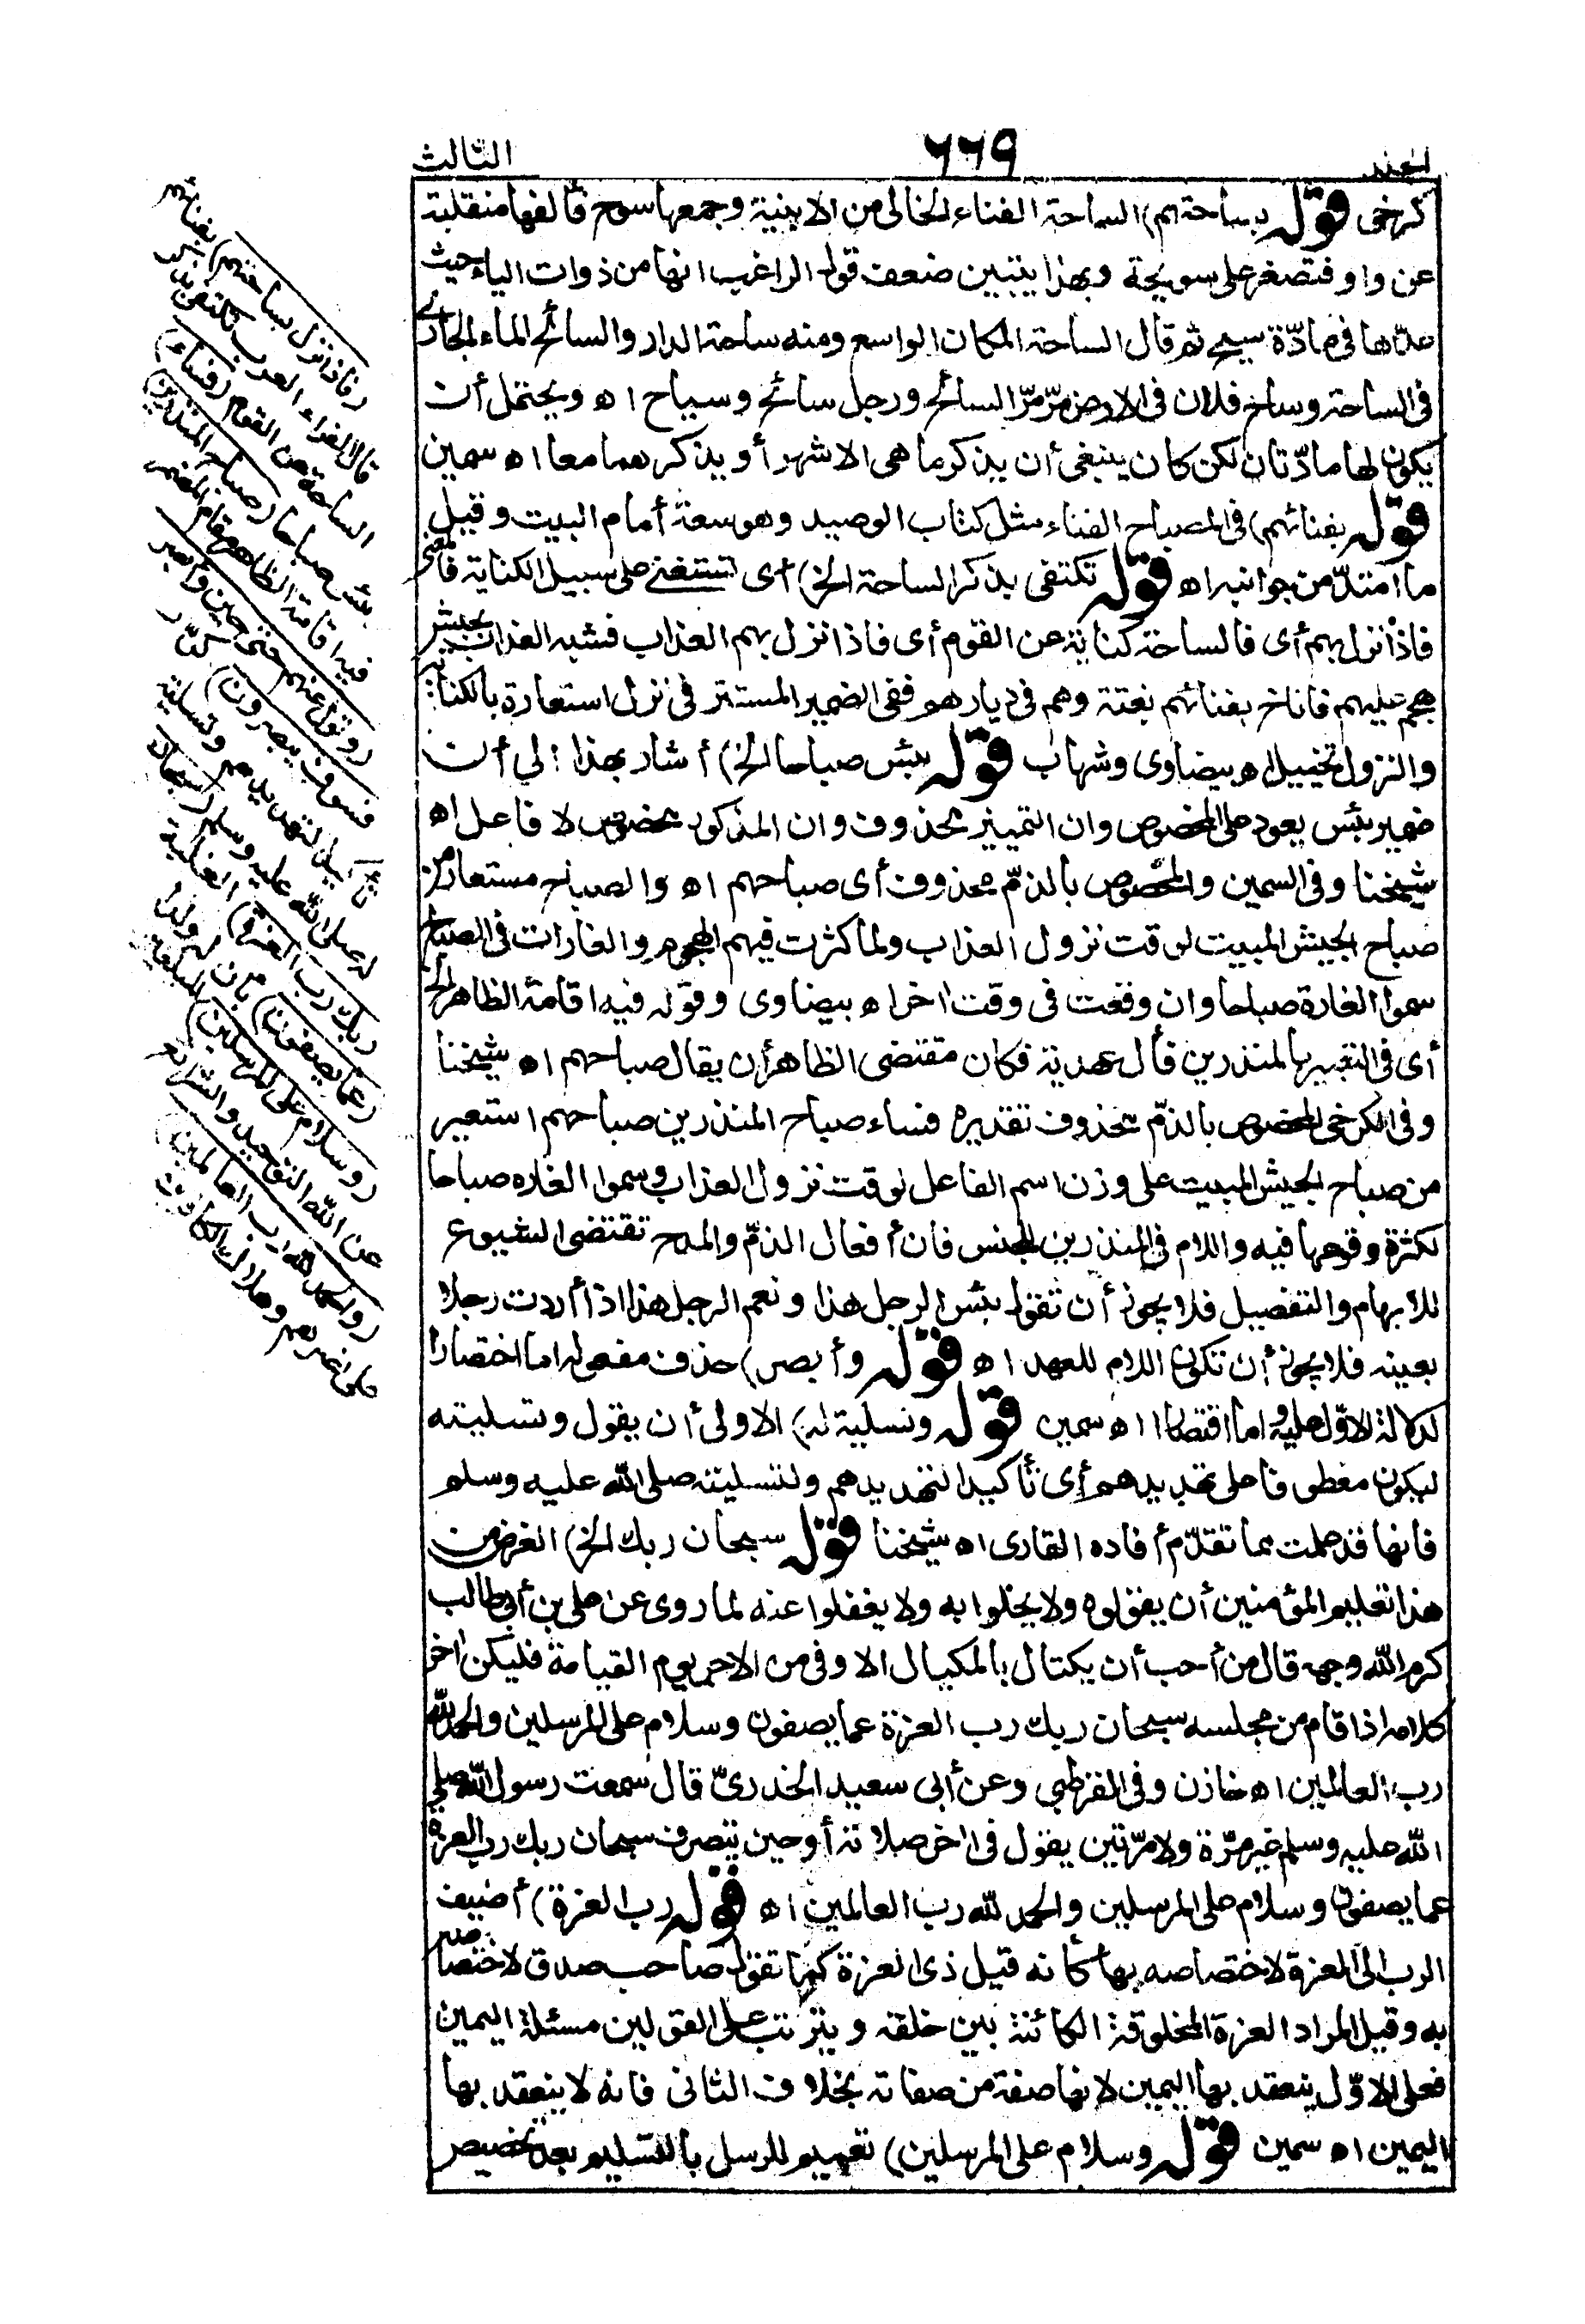 الجلد
٦٦٩
الثالث
كرخى قوله بساحتهم) الساحة الفناء الخالى من الابنية وجمعها سوح فألفها منقلبة
عن واو فتصغر على سويحة وبهذا يتبين ضعف قول الراغب انها من ذوات الياء حيث
عدّها فى مادّة سيح ثم قال الساحة المكان الواسع ومنه ساحة الدار والسائح الماء الجارى
فى الساحة وساح فلان فى الارض مرّ مرّ السائح ورجل سائح وسياح اه ويحتمل أن
يكون لها مادّتان لكن كان ينبغى أن يذكر ما هى الاشهر أو يذكرهما معا اه سمين
قوله بفنائهم) فى المصباح الفناء مثل كتاب الوصيد وهو سعة أمام البيت وقيل
ما امتدّ من جوانبه اه قوله تكتفى بذكر الساحة الخ) أى تستغنى على سبيل الكناية فالمعنى
فاذا نزل بهم أى فالساحة كناية عن القوم أى فاذا نزل بهم العذاب فشبه العذاب بجيش
هجم عليهم فاناخ بفنائهم بغتة وهم فى ديارهم ففى الضمير المستتر فى نزل استعارة بالكناية
والنزول تخييل اه بيضاوى وشهاب قوله بئس صباحا الخ) أشار بهذا الى أن
ضمير بئس يعود على المخصوص وان التمييز محذوف وان المذكور مخصوص لا فاعل اه
شيخنا وفى السمين والمخصوص بالذمّ محذوف أى صباحهم اه والصباح مستعار من
صباح الجيش المبيت لوقت نزول العذاب ولما كثرت فيهم الهجوم والغارات فى الصباح
سموا الغارة صباحا وان وقعت فى وقت اخر اه بيضاوى وقوله فيه اقامة الظاهر الخ
أى فى التعبير بالمنذرين فأل عهدية فكان مقتضى الظاهر أن يقال صباحهم اه شيخنا
وفى الكرخى المخصوص بالذمّ محذوف تقديره فساء صباح المنذرين صباحهم استعير
من صباح الجيش المبيت على وزن اسم الفاعل لوقت نزول العذاب وسموا الغاره صباحا
لكثرة وقوعها فيه واللام فى المنذرين للجنس فان أفعال الذمّ والمدح تقتضى الشيوع
للابهام والتفصيل فلا يجوز أن تقول بئس الرجل هذا ونعم الرجل هذا اذا أردت رجلا
بعينه فلا يجوز أن تكون اللام للعهد اه قوله وأبصر) حذف مفعوله اما اختصارا
لدلالة الاوّل عليه واما اقتصارا اه سمين قوله وتسلية له) الاولى أن يقول وتسليته
ليكون معطوفا على تهديدهم أى تأكيدا لتهديدهم ولتسليته صلى الله عليه وسلم
فانها قد علمت مما تقدّم أفاده القارى اه شيخنا قوله سبحان ربك الخ) الغرض من
هذا تعليم المؤمنين أن يقولوه ولا يخلوا به ولا يغفلوا عنه لما روى عن على بن أبى طالب
كرم الله وجهه قال من أحب أن يكتال بالمكيال الاوفى من الاجر يوم القيامة فليكن اخر
كلامه اذا قام من مجلسه سبحان ربك رب العزة عما يصفون وسلام على المرسلين والحمد لله
رب العالمين اه خازن وفى القرطبى وعن أبى سعيد الخدرىّ قال سمعت رسول الله صلى
الله عليه وسلم غير مرّة ولا مرّتين يقول فى اخر صلاته أو حين ينصرف سبحان ربك رب العزة
عما يصفون وسلام على المرسلين والحمد لله رب العالمين اه قوله رب العزة) أضيف
الرب الى العزة لاختصاصه بها كأنه قيل ذى العزة كما تقول صاحب صدق لاختصاصه
به وقيل المراد العزة المخلوقة الكائنة بين خلقه ويترتب على القولين مسئلة اليمين
فعلى الاوّل ينعقد بها اليمين لانها صفة من صفاته بخلاف الثانى فانه لا ينعقد بها
اليمين اه سمين قوله وسلام على المرسلين) تعميم للرسل بالتسليم بعد تخصيص
(فاذا نزل بساحتهم) بفنائهم
قال الفراء العرب تكتفى بذكر
الساحة عن القوم (فساء)
بئس صباحا (صباح المنذرين)
فيه اقامة الظاهر مقام المضمر
(وتول عنهم حتى حين وأبصر
فسوف يبصرون) كرّر
تأكيدا لتهديدهم وتسلية
له صلى الله عليه وسلم (سبحان
ربك رب العزة) الغلبة
(عما يصفون) بأن له ولدا
(وسلام على المرسلين) المبلغين
عن الله التوحيد والشرائع
(والحمد لله رب العالمين)
على نصرهم وهلاك الكافرين